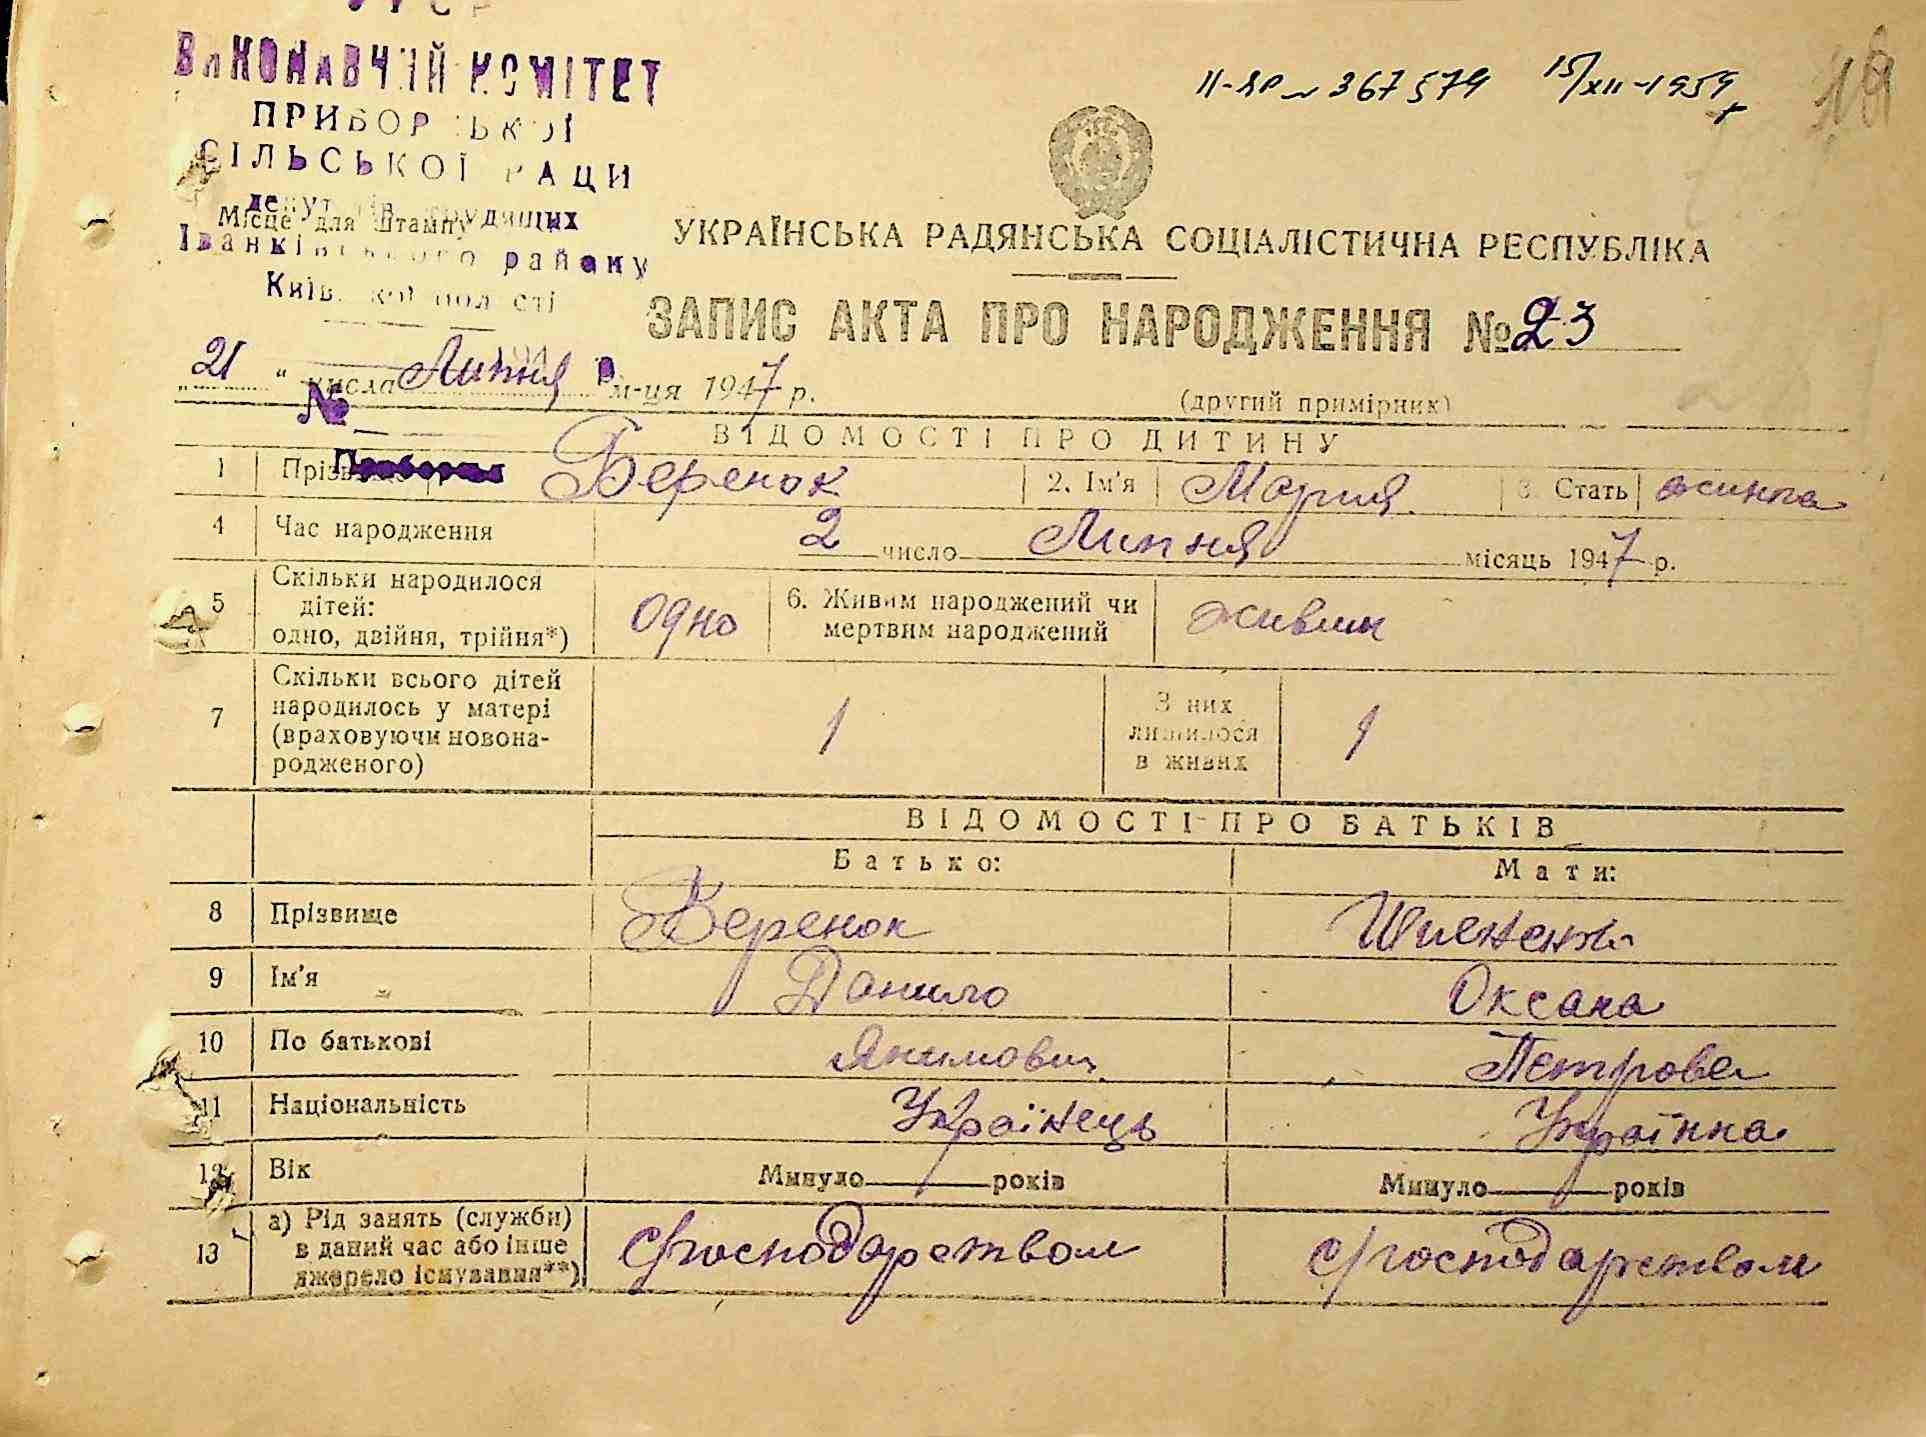 ВИКОНАВЧИЙ КОМІТЕТ
ПРИБОРСЬКОЇ
СІЛЬСЬКОЇ РАДИ
депутатів трудящих
Місце для штампу
Іванківського району
Київської області
ІІ-ЯР № 367579 15/XII-1959
УКРАЇНСЬКА РАДЯНСЬКА СОЦІАЛІСТИЧНА РЕСПУБЛІКА
ЗАПИС АКТА ПРО НАРОДЖЕННЯ № 23
„21“ числа Липня м-ця 1947 р.
(другий примірник)
№
ВІДОМОСТІ ПРО ДИТИНУ
1 Прізвище Веренок 2. Ім'я Мария 3. Стать жинка
4 Час народження 2 число Липня місяць 1947 р.
5 Скільки народилося дітей: одно, двійня, трійня*) Одно 6. Живим народжений чи мертвим народжений живим
7 Скільки всього дітей народилось у матері (враховуючи новонародженого) 1 З них лишилося в живих 1
ВІДОМОСТІ ПРО БАТЬКІВ
Батько: Мати:
8 Прізвище Веренок
9 Ім'я Данило Оксана
10 По батькові Якимович Петрова
11 Національність Українець Українка
12 Вік Минуло років Минуло років
13 а) Рід занять (служби) в даний час або інше джерело існування**) с/господарством с/господарством